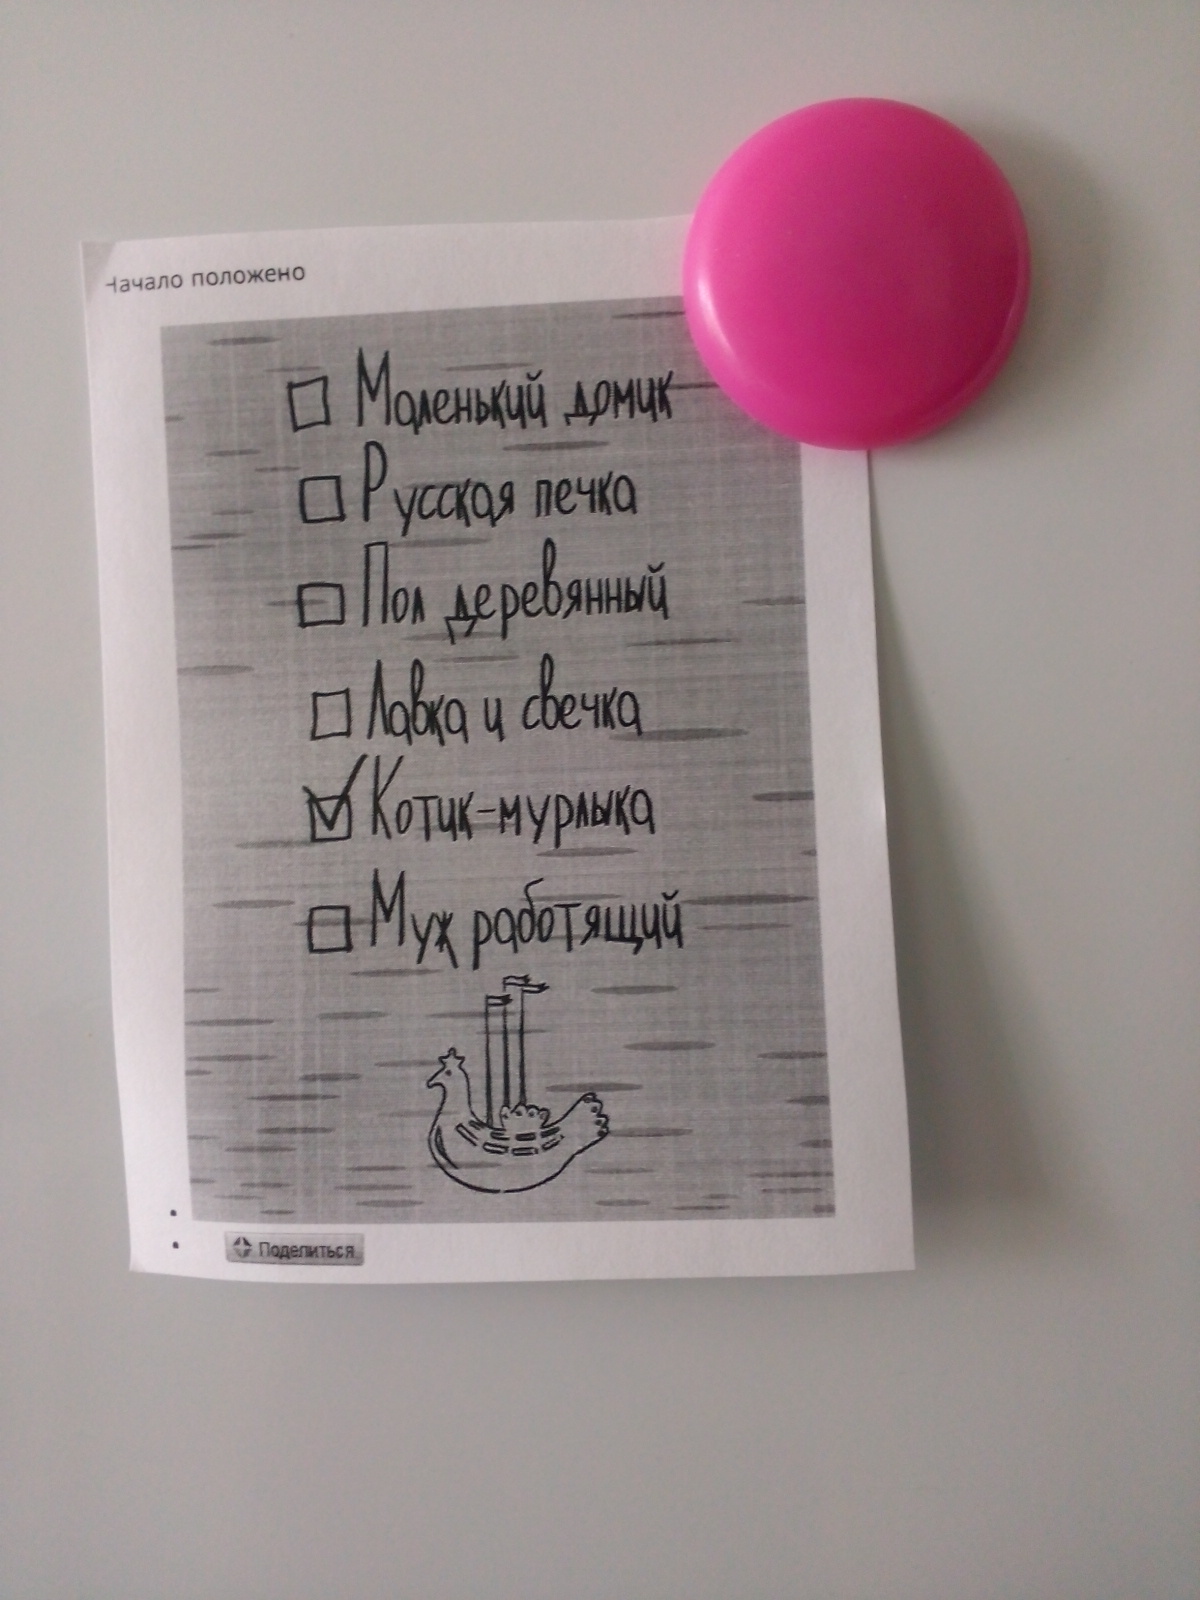 Начало положено
Маленький домик
Русская печка
Пол деревянный
Лавка и свечка
Котик-мурлыка
Муж работящий
Поделиться